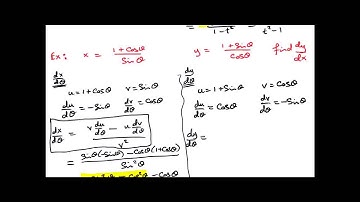 1-t² t²-1
Ex: x = (1+cosθ)/sinθ y = (1+sinθ)/cosθ find dy/dx
dx/dθ
u=1+cosθ v=sinθ
du/dθ = -sinθ dv/dθ = cosθ
dx/dθ = (v du/dθ - u dv/dθ)/v²
= (sinθ(-sinθ) - cosθ(1+cosθ))/sin²θ
dy/dθ
u=1+sinθ v=cosθ
du/dθ = cosθ dv/dθ = -sinθ
dy/dθ =